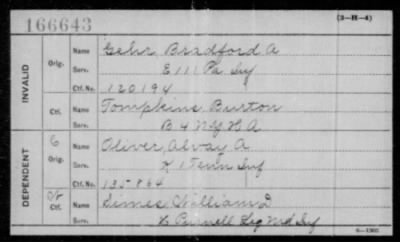 166643
(3-H-4)
INVALID
Orig.
Name Gehr Bradford A
Serv. E 111 Pa Inf
Ctf. No. 120194
Ctf.
Name Tompkins Burton
Serv. B 4 NY H A
DEPENDENT
C
Orig.
Name Oliver, Alvay A
Serv. K 1 Tenn Inf
Ctf. No. 135864
Ctf.
Name Simes William D
Serv. Purnell Leg Md Inf